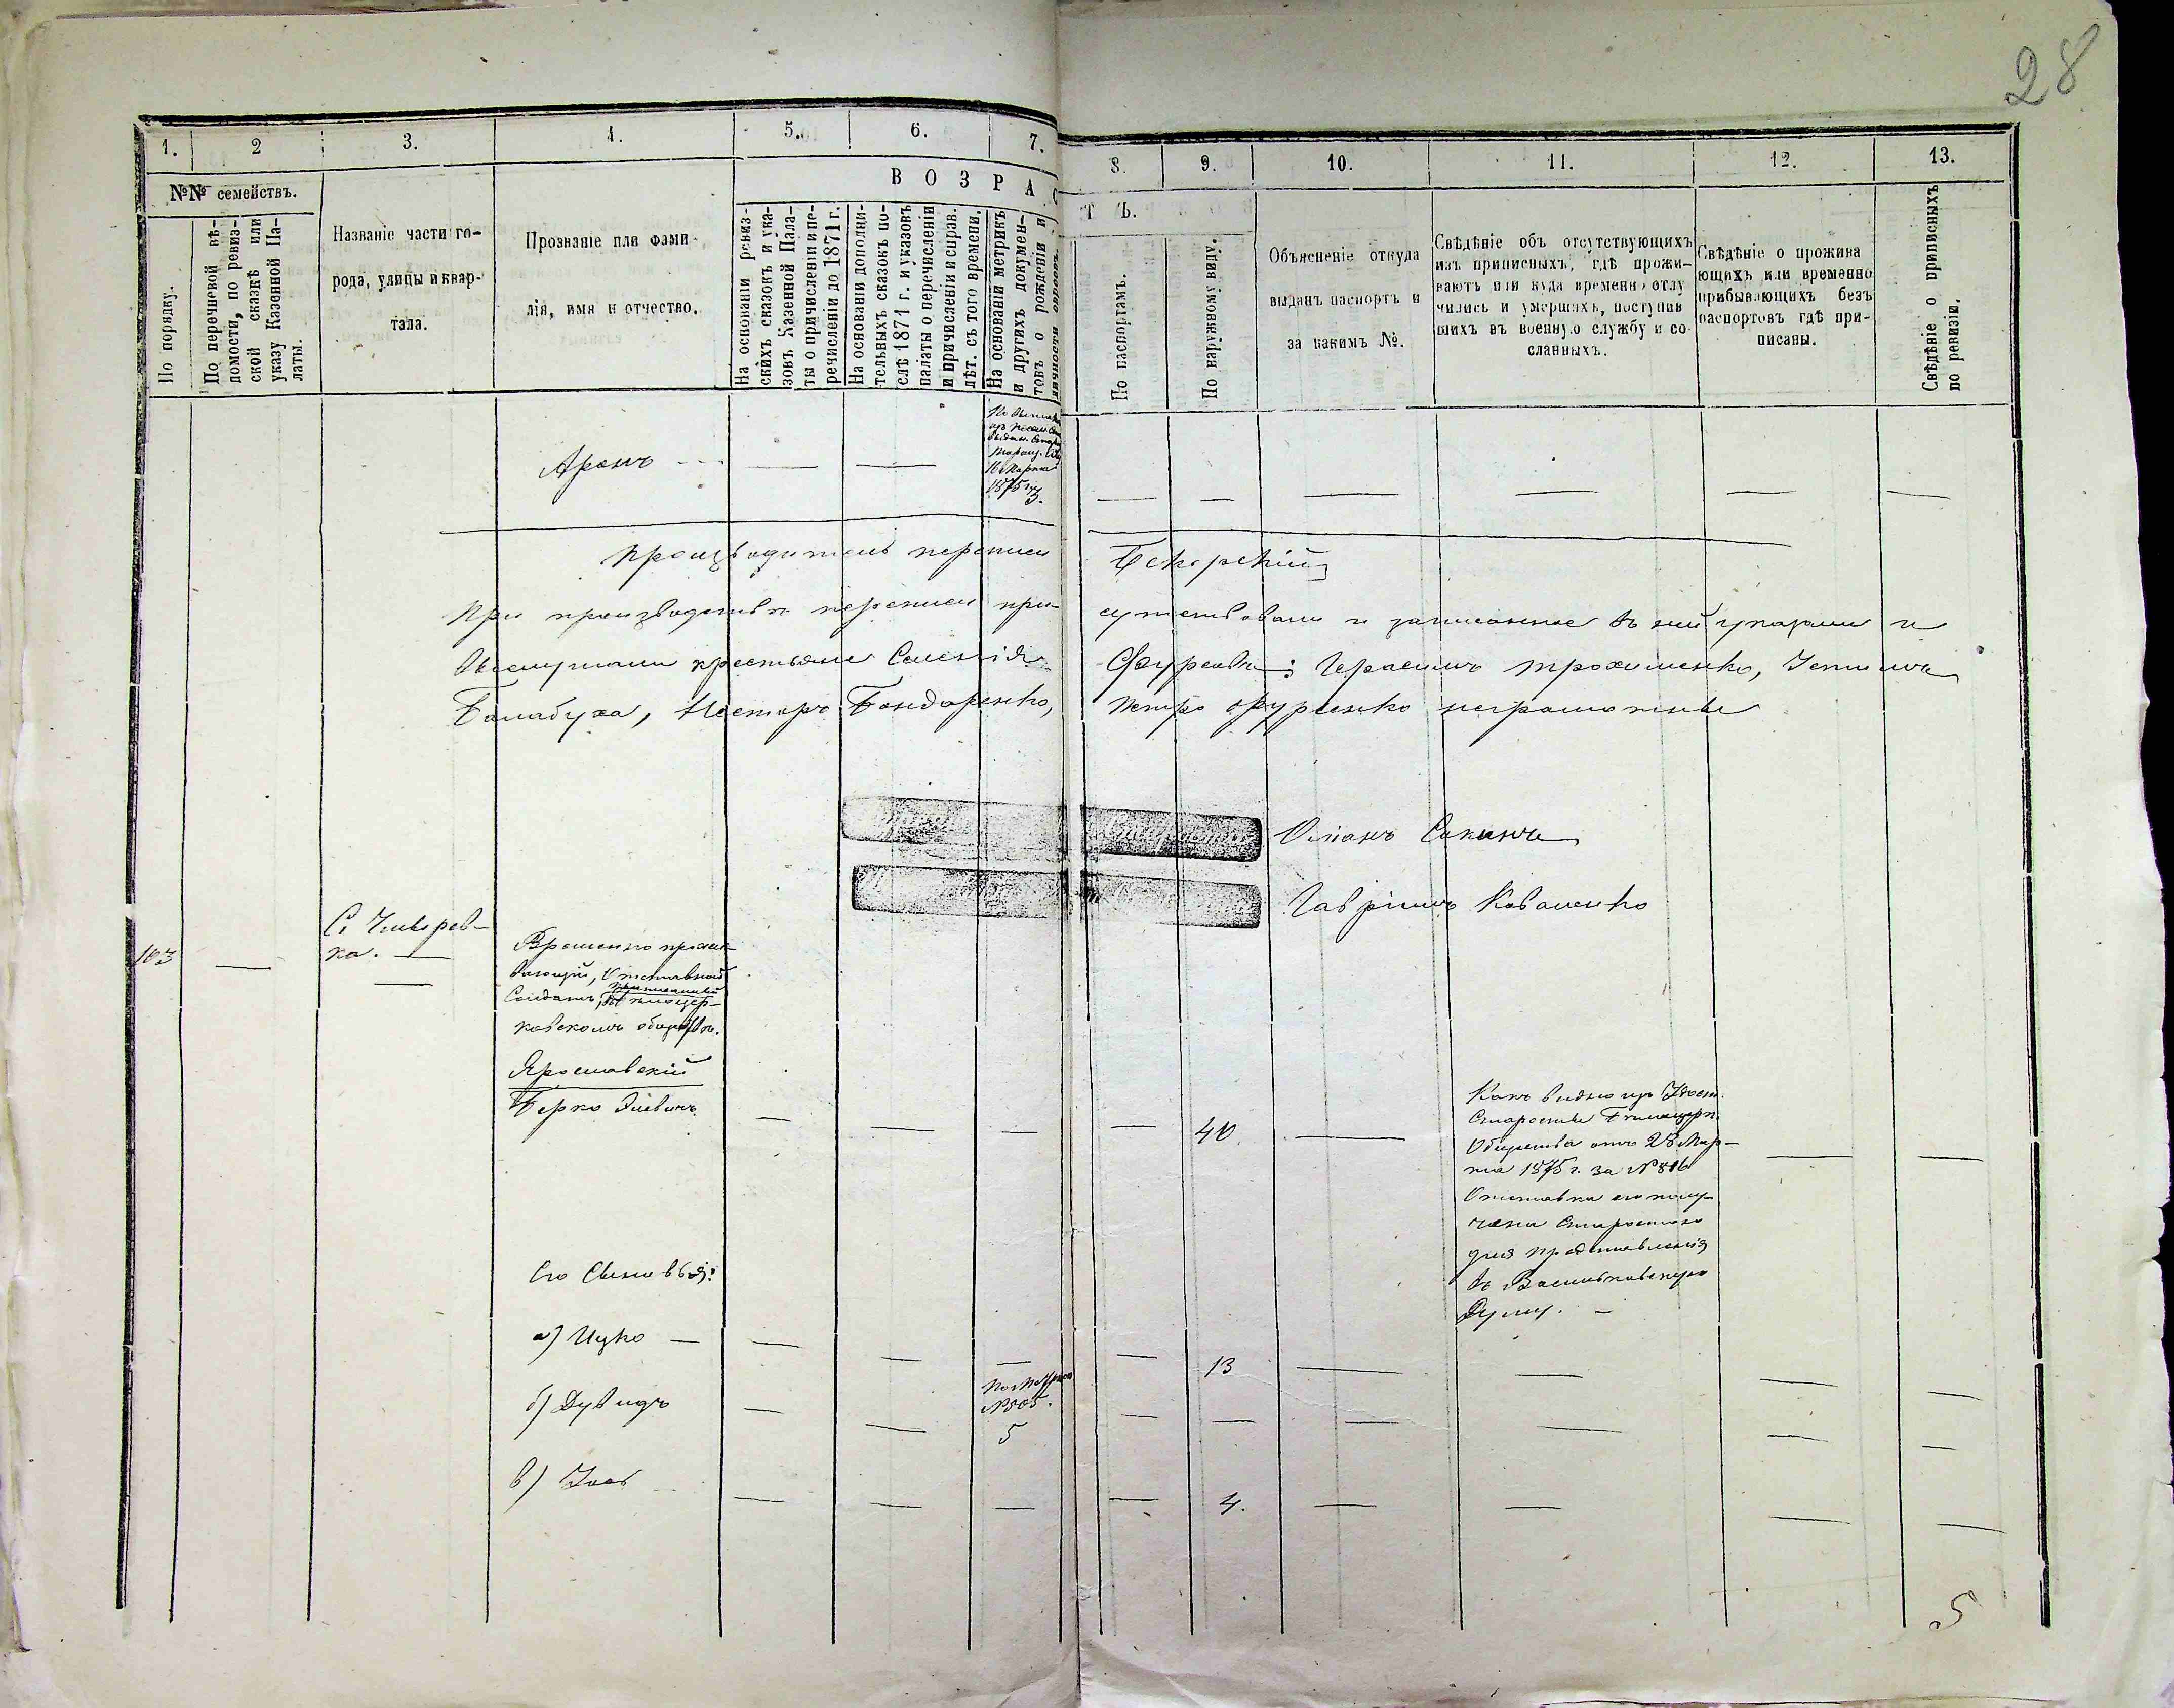 28
1. 2 3. 4. 5. 6. 7. 8. 9. 10. 11. 12. 13.
№№ семействъ.
По порядку.
По перечневой вѣ-
домости, по ревиз-
ской сказкѣ или
указу Казенной Па-
латы.
Названіе части го-
рода, улицы и квар-
тала.
Прозваніе или фами-
лія, имя и отчество.
ВОЗРАСТЪ.
На основаніи ревиз-
скихъ сказокъ и ука-
зовъ Казенной Пала-
ты о причисленіи и пе-
речисленіи до 1871 г.
На основаніи дополни-
тельныхъ сказокъ по-
слѣ 1871 г. и указовъ
палаты о перечисленіи
и причисленіи и справ.
лѣт. съ того времени.
На основаніи метрикъ
и другихъ докумен-
товъ о рожденіи и
личности евреевъ.
По паспортамъ.
По наружному виду.
Объясненіе откуда
выданъ паспортъ и
за какимъ №.
Свѣдѣніе объ отсутствующихъ
изъ приписныхъ, гдѣ прожи-
ваютъ или куда временно отлу
чились и умершихъ, поступив
шихъ въ военную службу и со-
сланныхъ.
Свѣдѣніе о прожива
ющихъ или временно
прибывающихъ безъ
паспортовъ гдѣ при-
писаны.
Свѣдѣніе о приписныхъ
по ревизіи.
Аронъ — — — — — — — — —
16 Марта
1875 г.
3.
Производитель переписи
При производствѣ переписи при-сутствовали и записанное въ ней указали и
крестьяне Селенія Фурсовъ: Герасимъ Трохименко, Устимъ
Балабуха, Несторъ Бондаренко, Петро Фурсенко неграмотные
Гавріилъ Коваленко
103 —
С. Чмырев-
ка. —
—
Временно прожи-
вающій, Отставной
Солдатъ, приписанный
въ Бѣлоцер-
ковскомъ обществѣ.
Ярославскій
Берко — — — — 40. — — —
Какъ видно изъ Удост.
Старосты Бѣлоцерк.
Общества отъ 28 Мар-
та 1875 г. за № 816
Отставка его полу-
чена Старостою
для представленія
въ Васильковскую
Думу. —
Его Сыновья:
а) Ицко — — — — — 13 — — — —
б) Дувидъ — — — — — — — —
№ 505.
5
в) Іось — — — — 4. — — — —
5